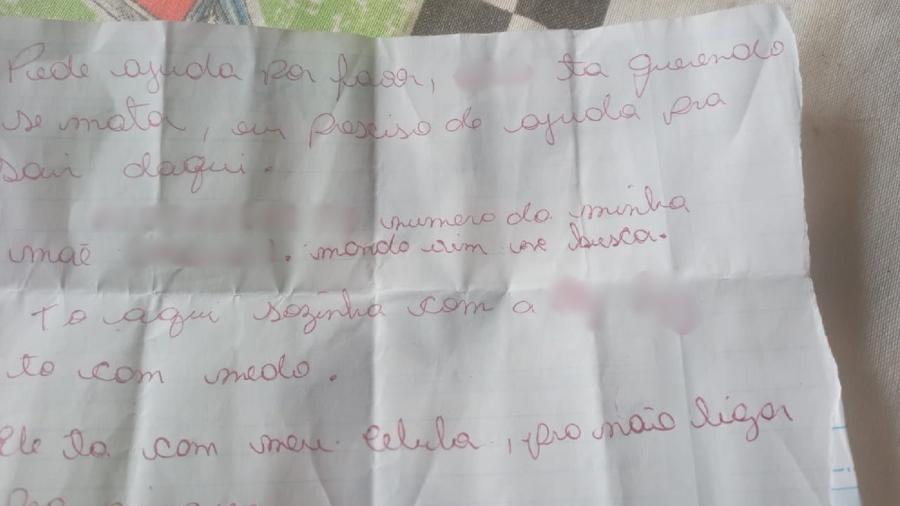 Pede ajuda por favor, ta querendo
se mata, eu presciso de ajuda pra
sair daqui.
numero da minha
mãe . manda vim me busca.
to aqui sozinha com a
to com medo.
ele ta com meu celula, pra não ligar
pra